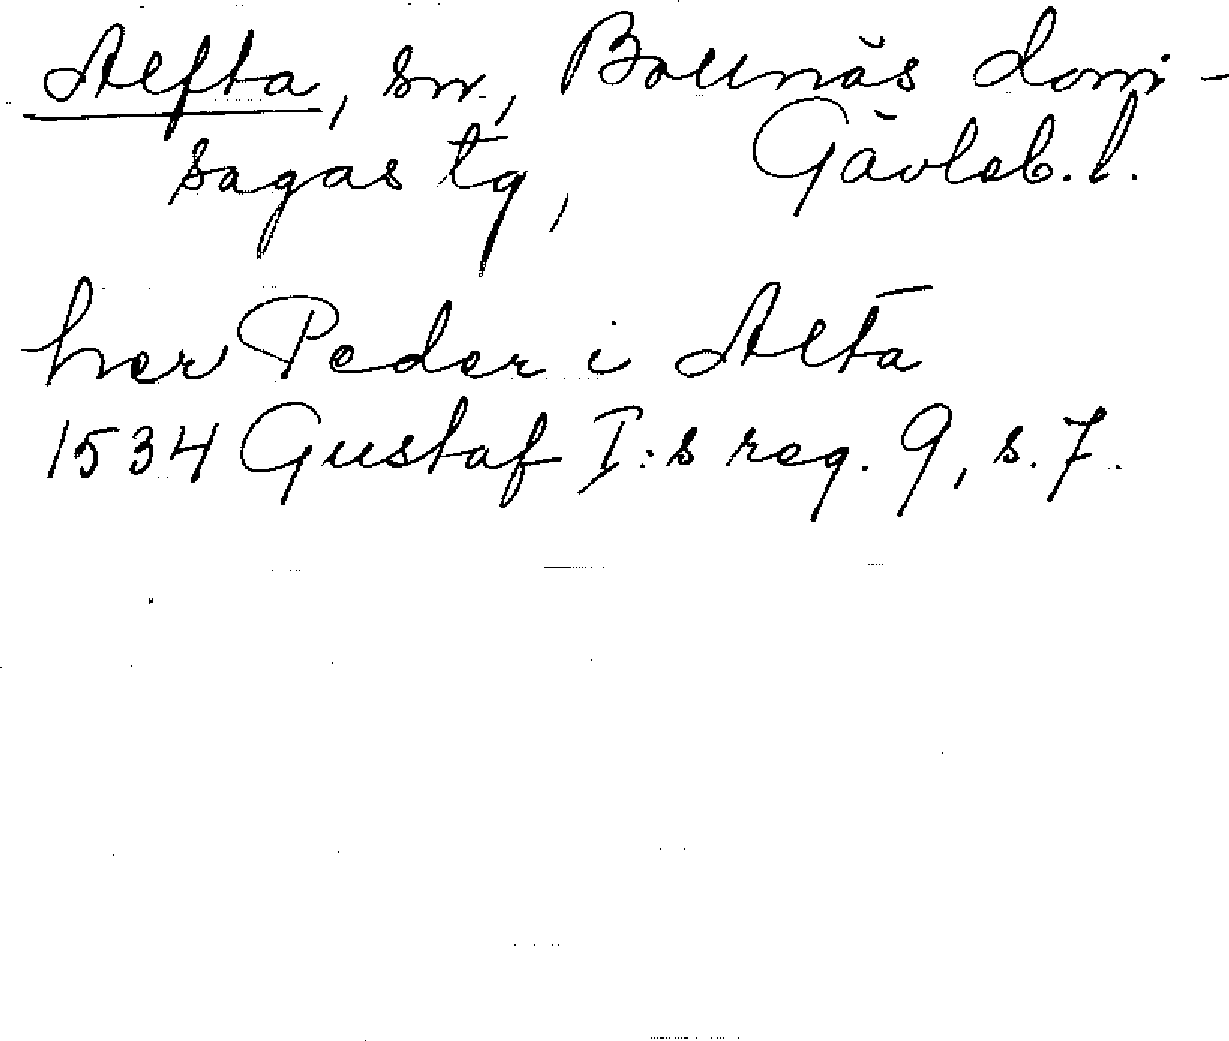 Alfta, sn, Bollnäs dom-
sagas tg, Gävleb. l.
her Peder i Alta
1534 Gustaf I:s reg. 9, s. 7.